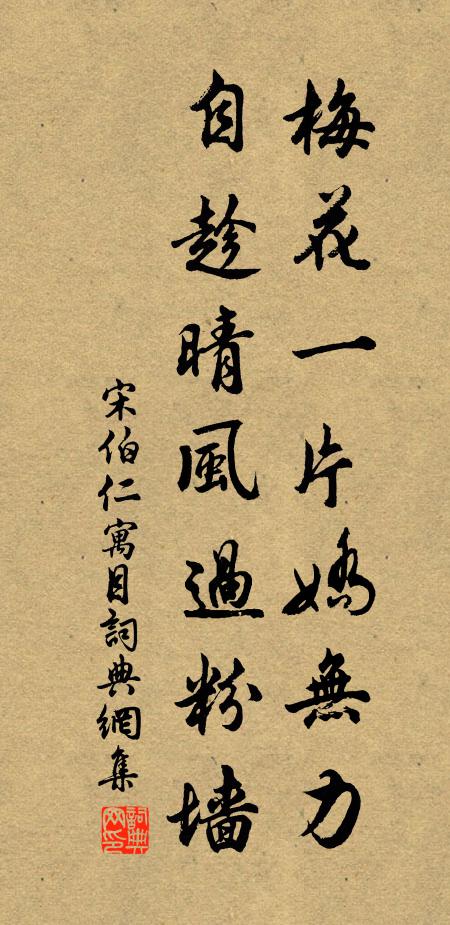 梅花一片嬌無力
自趁晴風過粉墙
宋伯仁寓目詞典網集
詞典网印